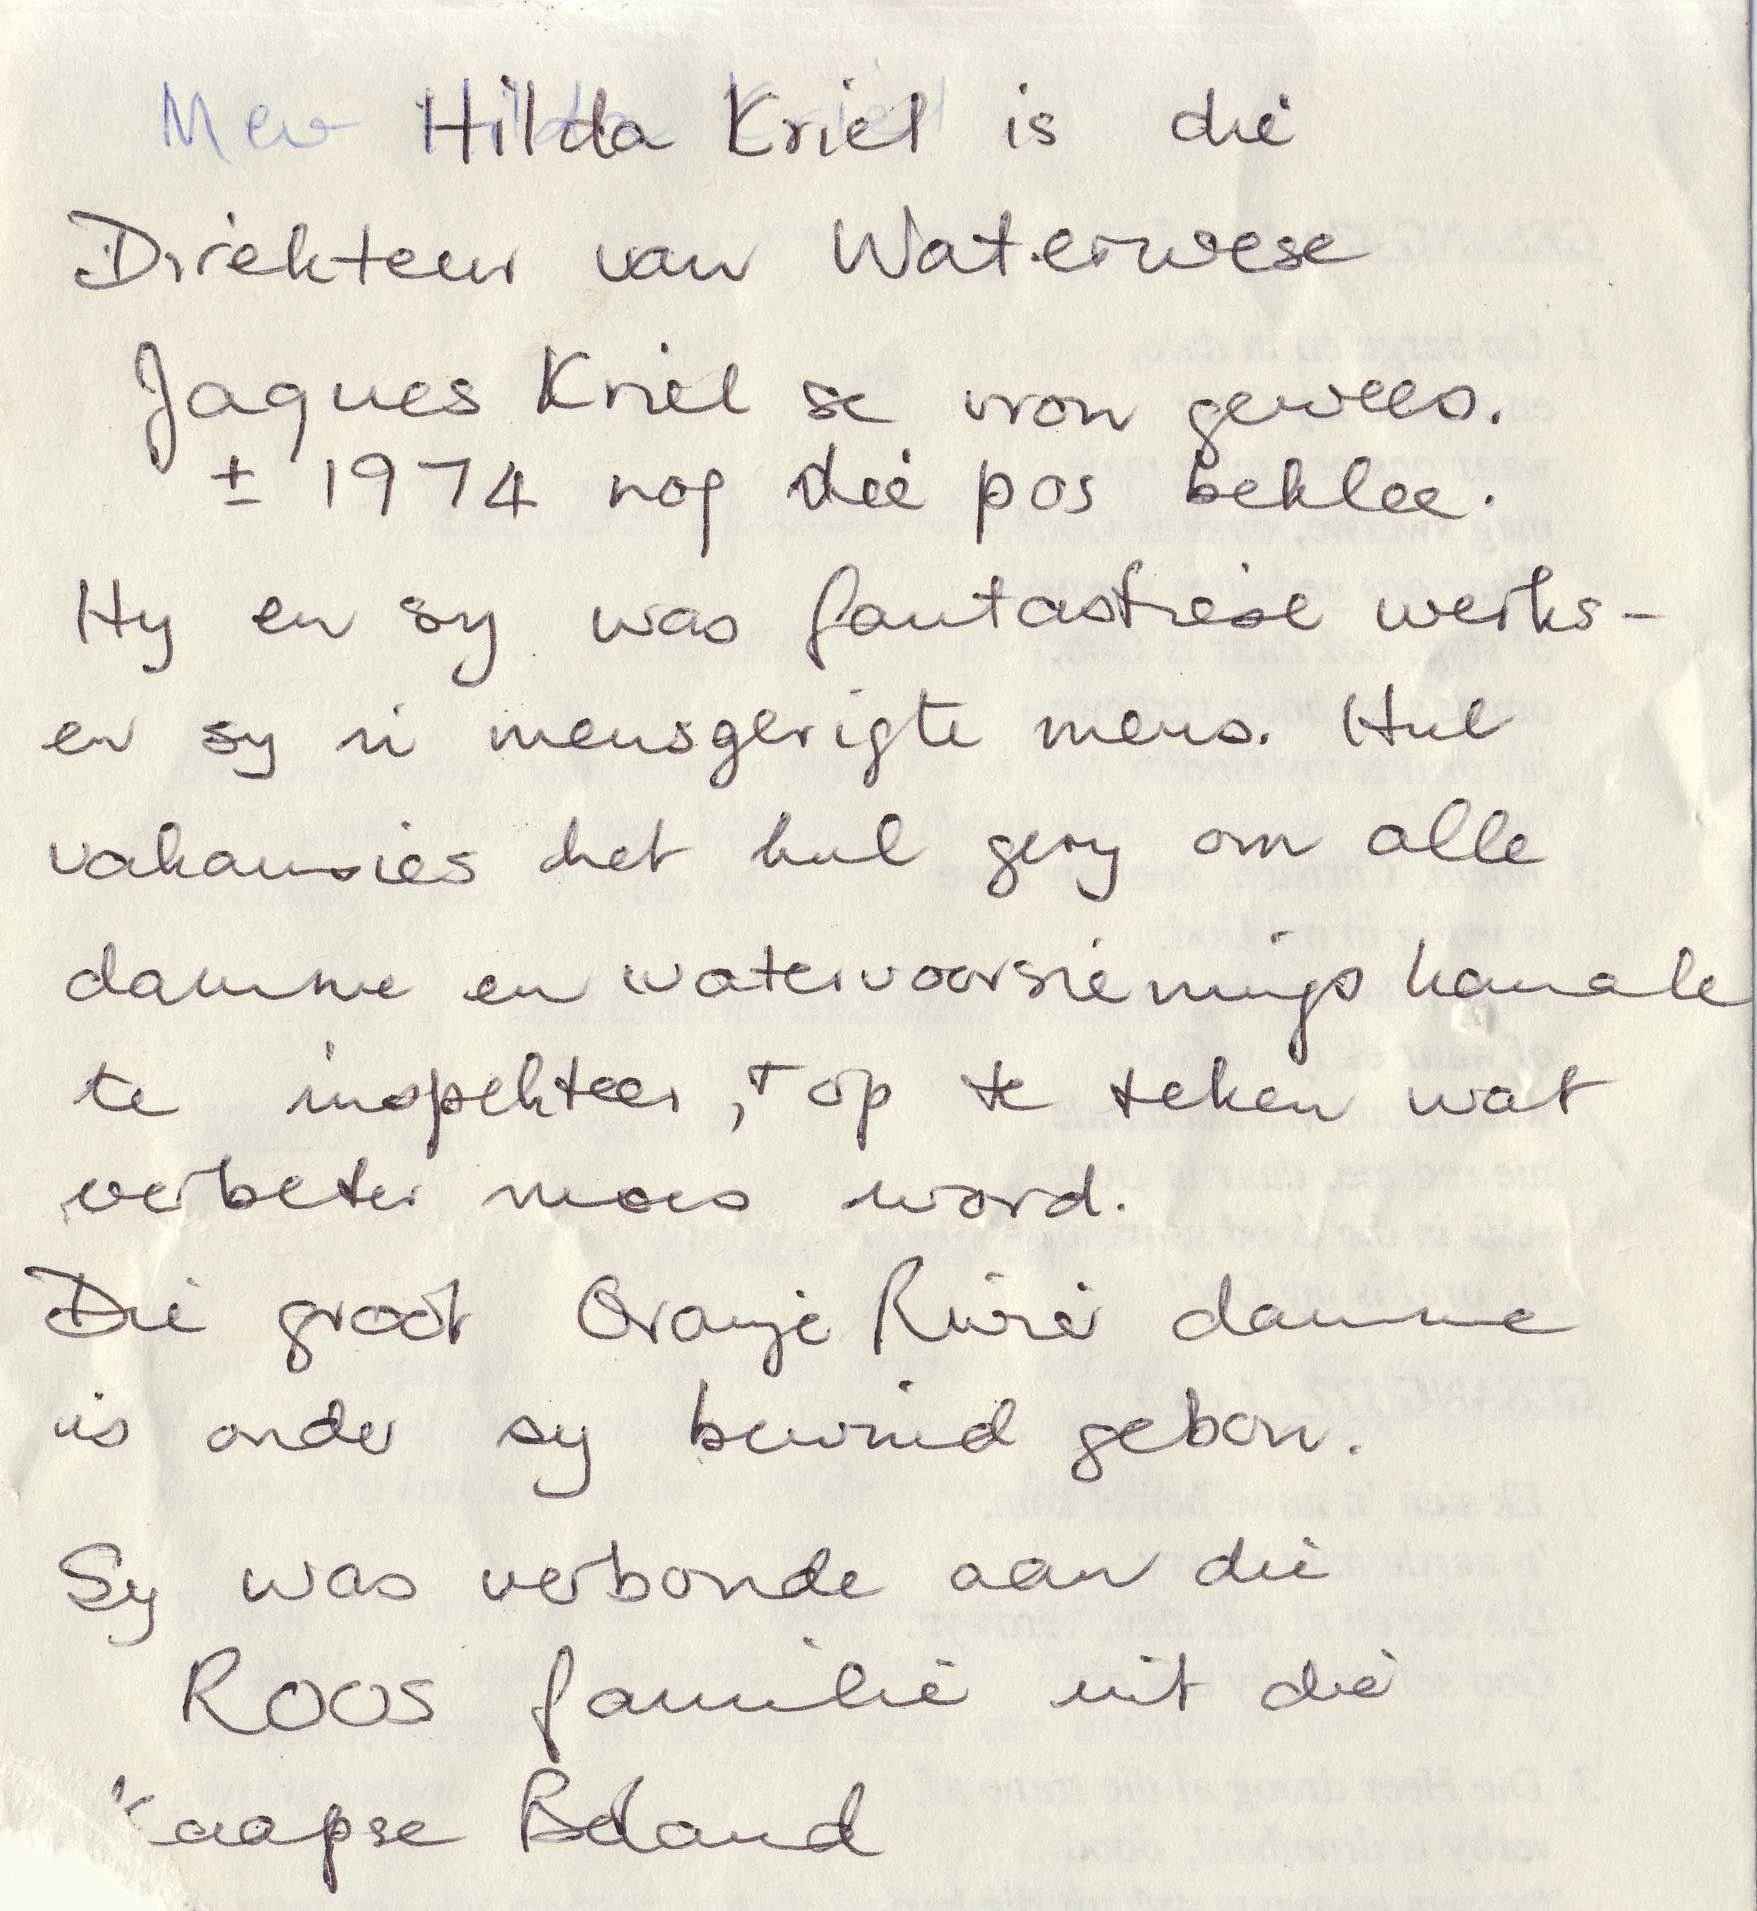 Mev Hilda Kriel is die
Direkteur van Waterwese
Jaques Kriel se vrou gewees.
± 1974 nog die pos beklee.
Hy en sy was fantastiese werks-
en sy 'n mensgerigte mens. Hul
vakansies het hul gery om alle
damme en watervoorsienings kanale
te inspekteer, + op te teken wat
verbeter moes word.
Die groot Oranje Rivier damme
is onder sy bewind gebou.
Sy was verbonde aan die
ROOS familie uit die
Kaapse Boland